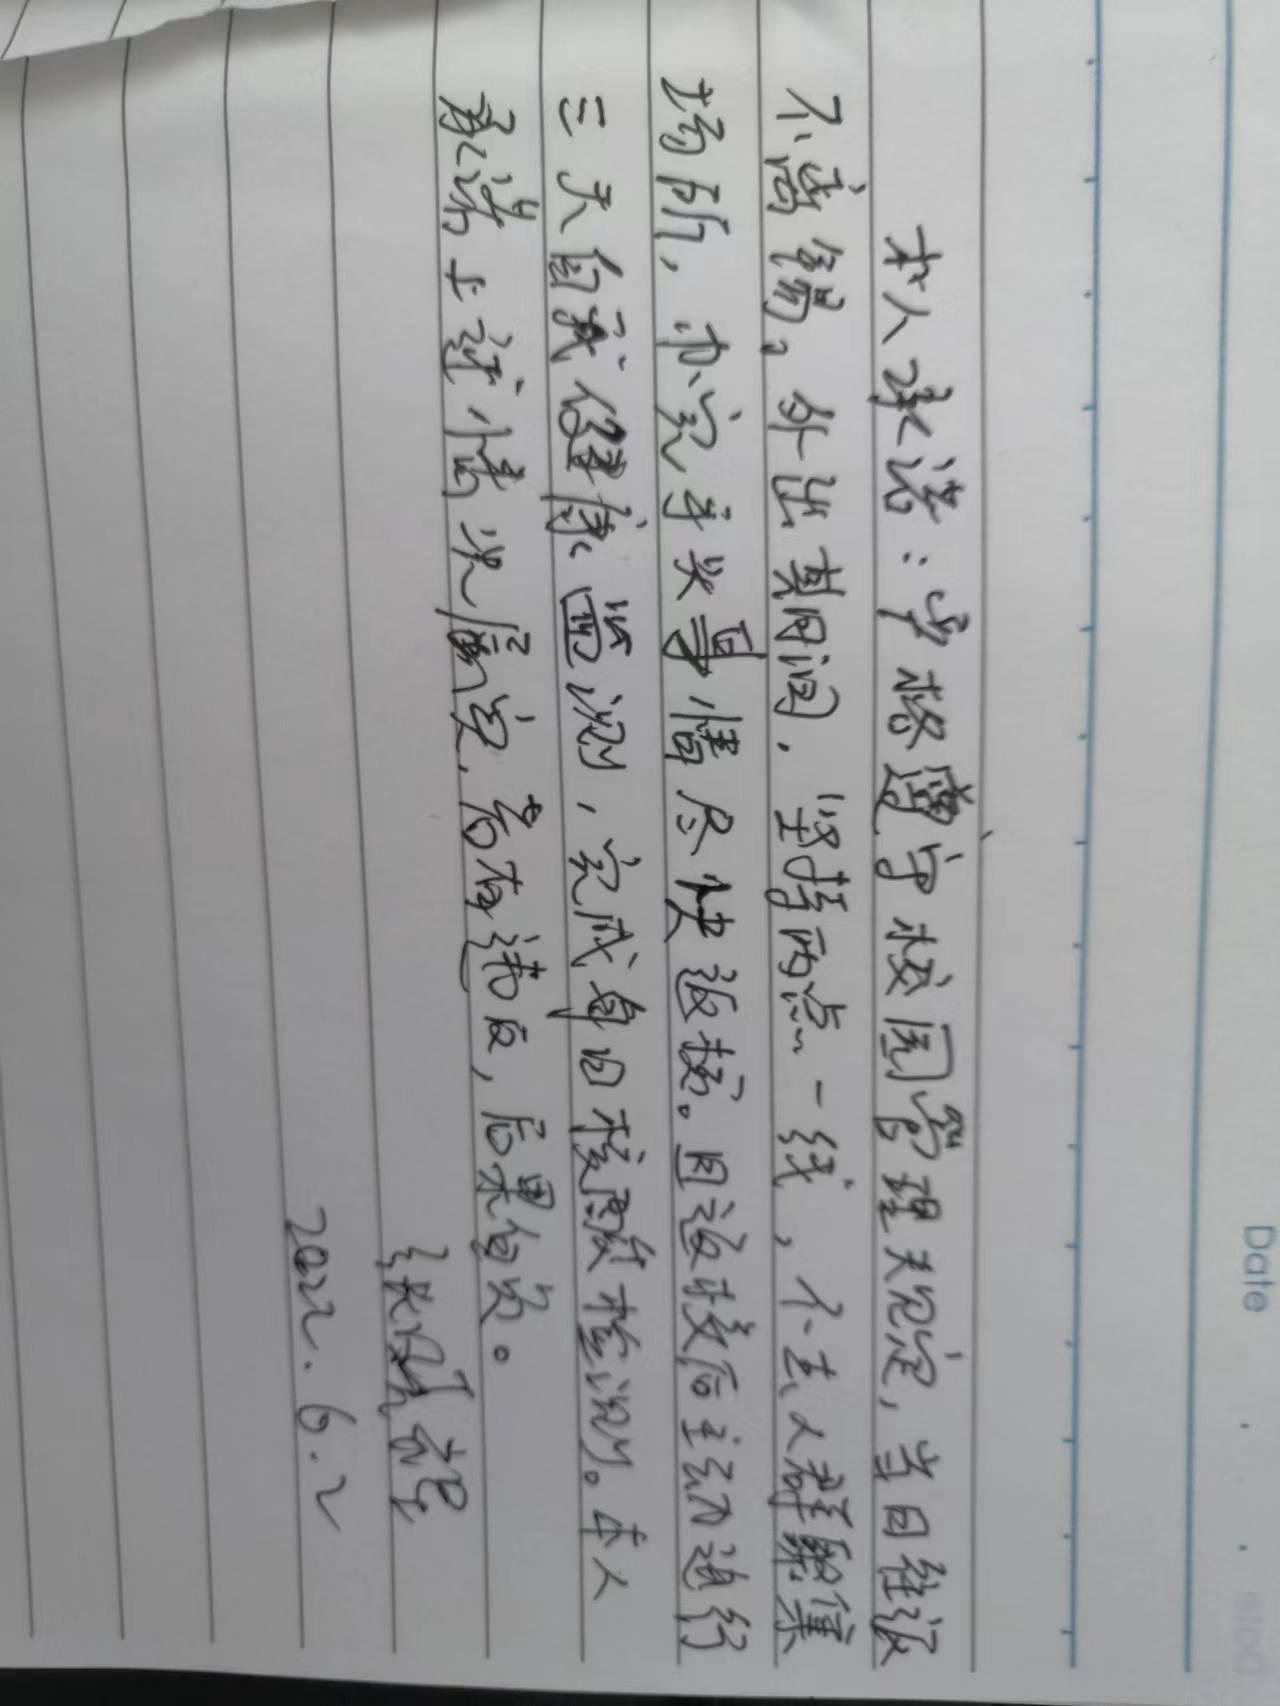 Date
本人承诺：严格遵守校园管理规定，当日往返
不离锡。外出期间，坚持两点一线，不去人群聚集
场所，办完手头事情尽快返校。且返校后主动进行
三天自我健康监测，完成每日核酸检测。本人
承诺上述情况属实，若有违反，后果自负。
2022.6.2